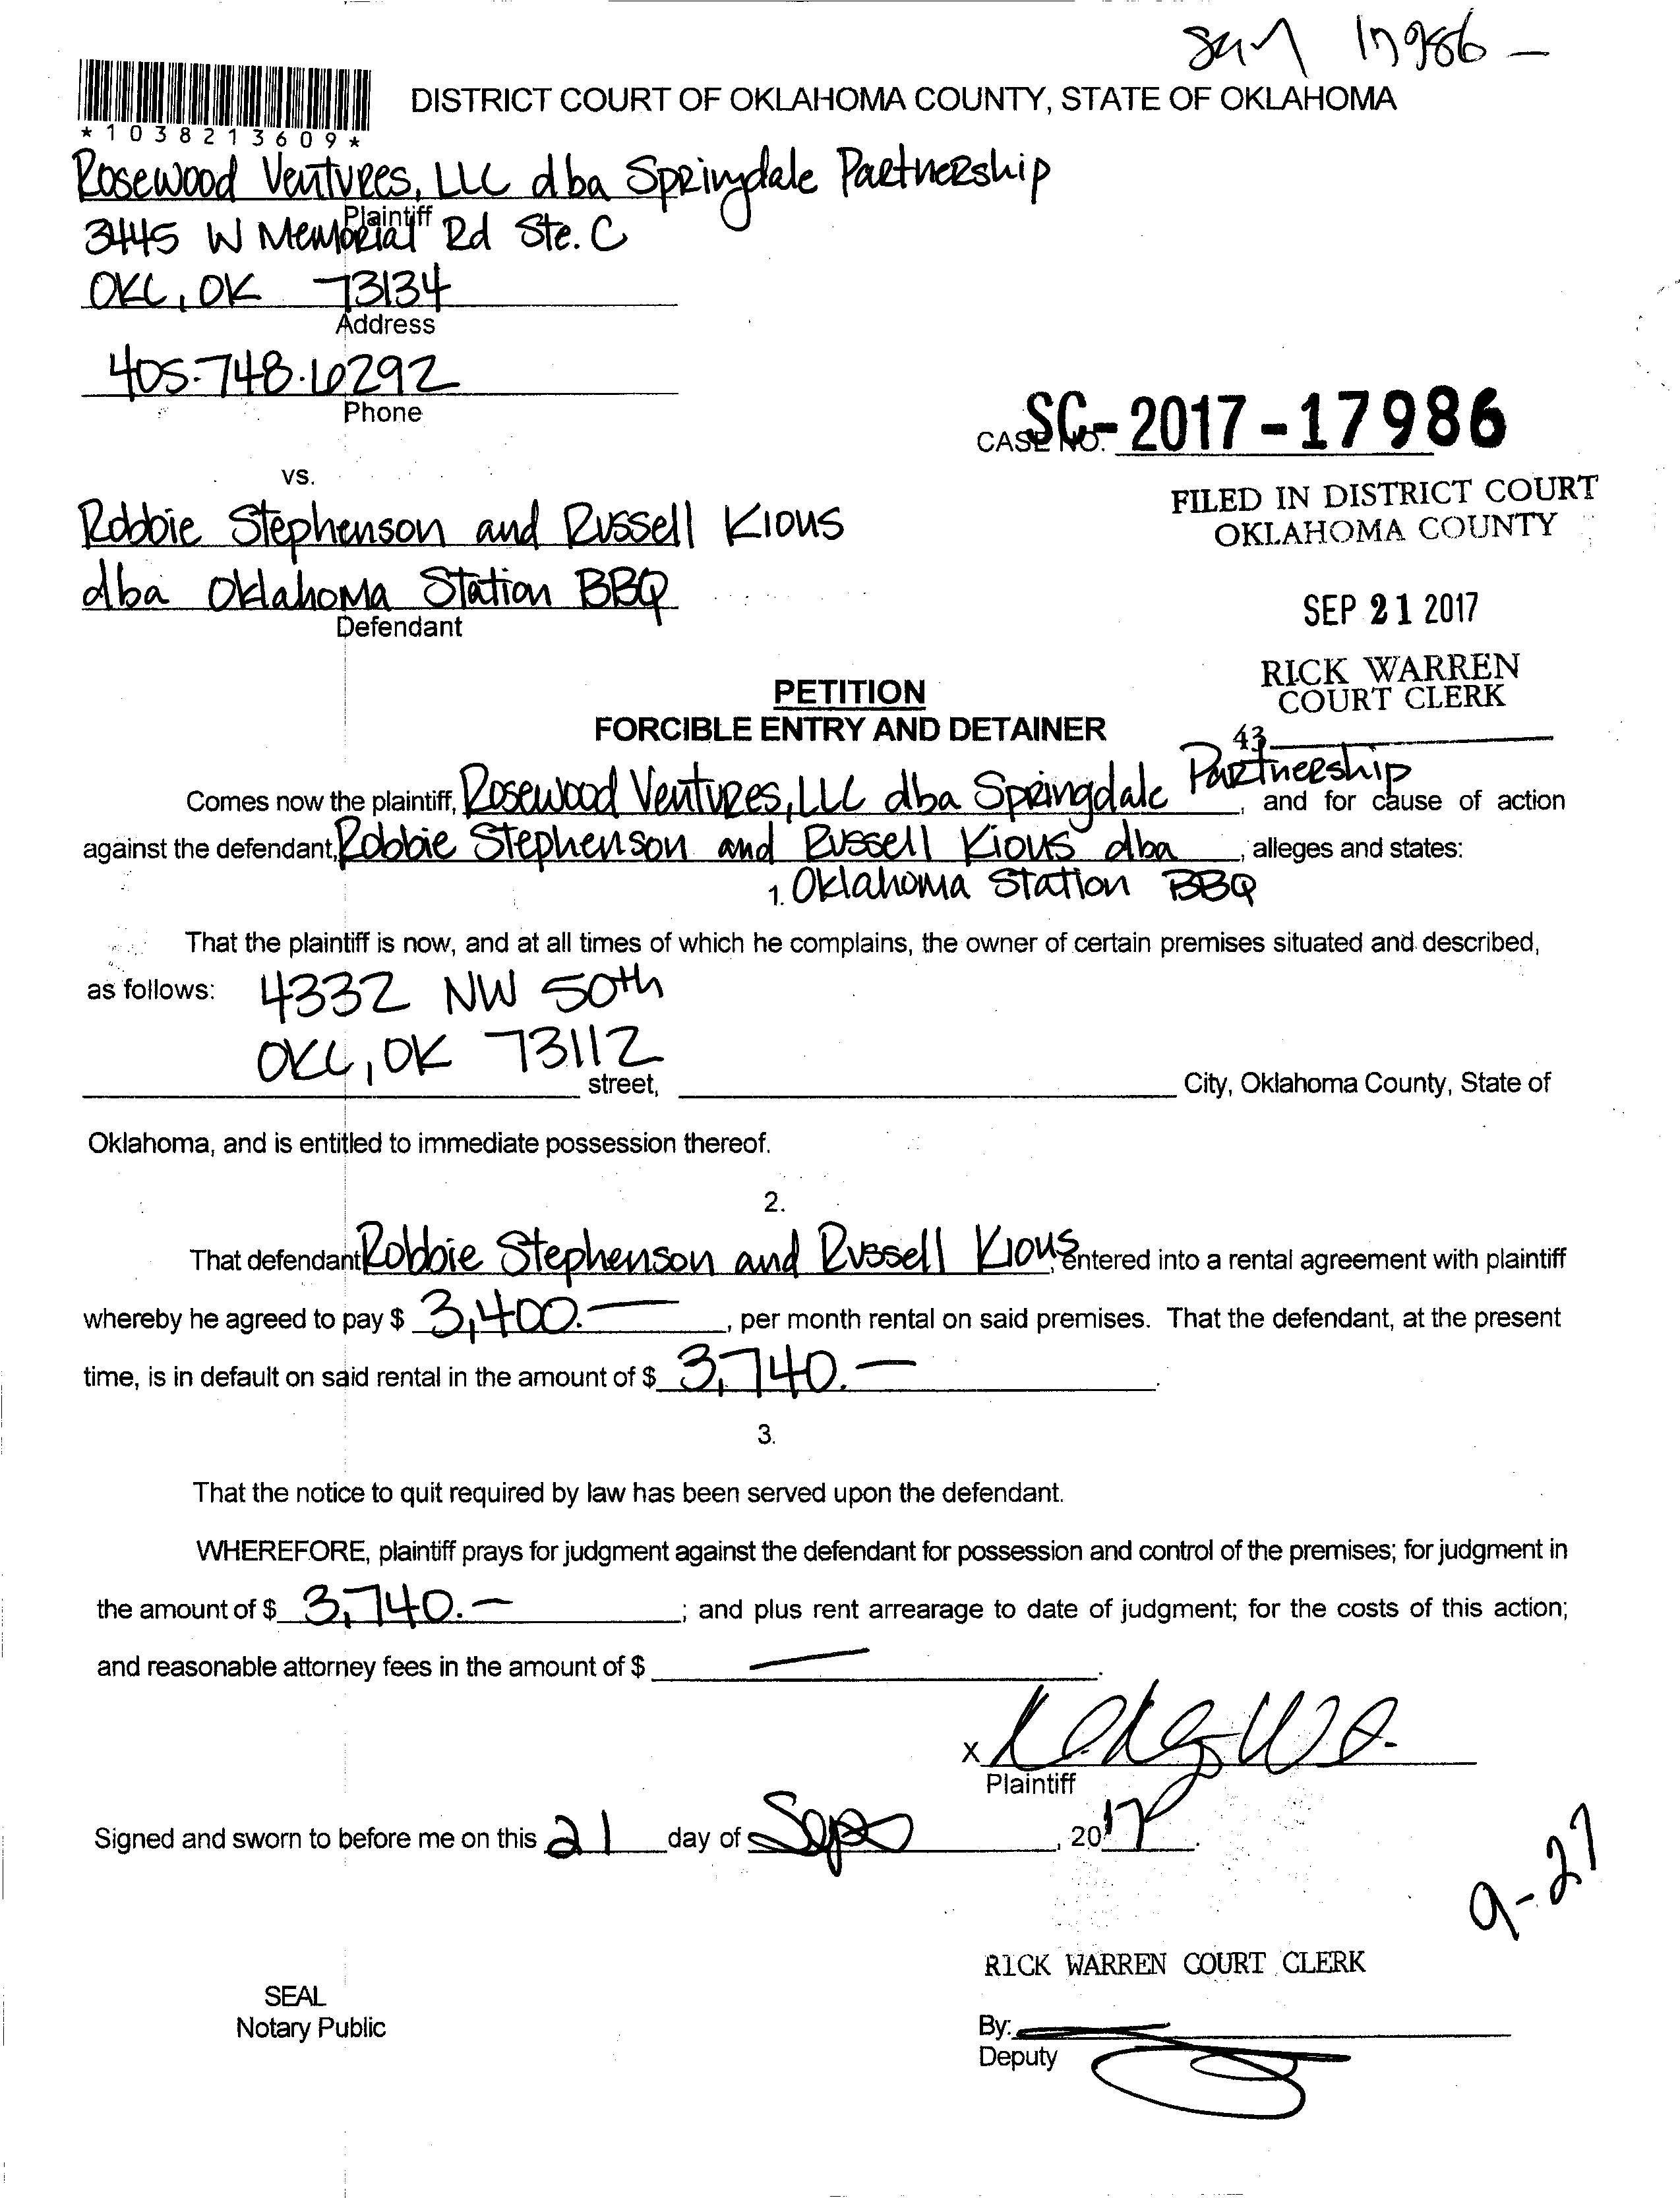 17986 —
DISTRICT COURT OF OKLAHOMA COUNTY, STATE OF OKLAHOMA
*1038213609*
Rosewood Ventures, LLC dba Springdale Partnership
Plaintiff
3445 W Memorial Rd Ste. C
OKC, OK 73134
Address
405-748-6292
Phone
CASE NO. SC-2017-17986
vs.
FILED IN DISTRICT COURT
OKLAHOMA COUNTY
Robbie Stephenson and Russell Kious
dba Oklahoma Station BBQ
Defendant
SEP 21 2017
RICK WARREN
COURT CLERK
43
PETITION
FORCIBLE ENTRY AND DETAINER
Comes now the plaintiff, Rosewood Ventures, LLC dba Springdale Partnership, and for cause of action
against the defendant, Robbie Stephenson and Russell Kious dba, alleges and states:
1. Oklahoma Station BBQ
That the plaintiff is now, and at all times of which he complains, the owner of certain premises situated and described,
as follows: 4332 NW 50th
OKC, OK 73112
street, City, Oklahoma County, State of
Oklahoma, and is entitled to immediate possession thereof.
2.
That defendant Robbie Stephenson and Russell Kious, entered into a rental agreement with plaintiff
whereby he agreed to pay $ 3,400.—, per month rental on said premises. That the defendant, at the present
time, is in default on said rental in the amount of $ 3,740.—.
3.
That the notice to quit required by law has been served upon the defendant.
WHEREFORE, plaintiff prays for judgment against the defendant for possession and control of the premises; for judgment in
the amount of $ 3,740.—; and plus rent arrearage to date of judgment; for the costs of this action;
and reasonable attorney fees in the amount of $ —.
X
Plaintiff
Signed and sworn to before me on this 21 day of Sep, 2017.
9-27
RICK WARREN COURT CLERK
SEAL
Notary Public
By:
Deputy